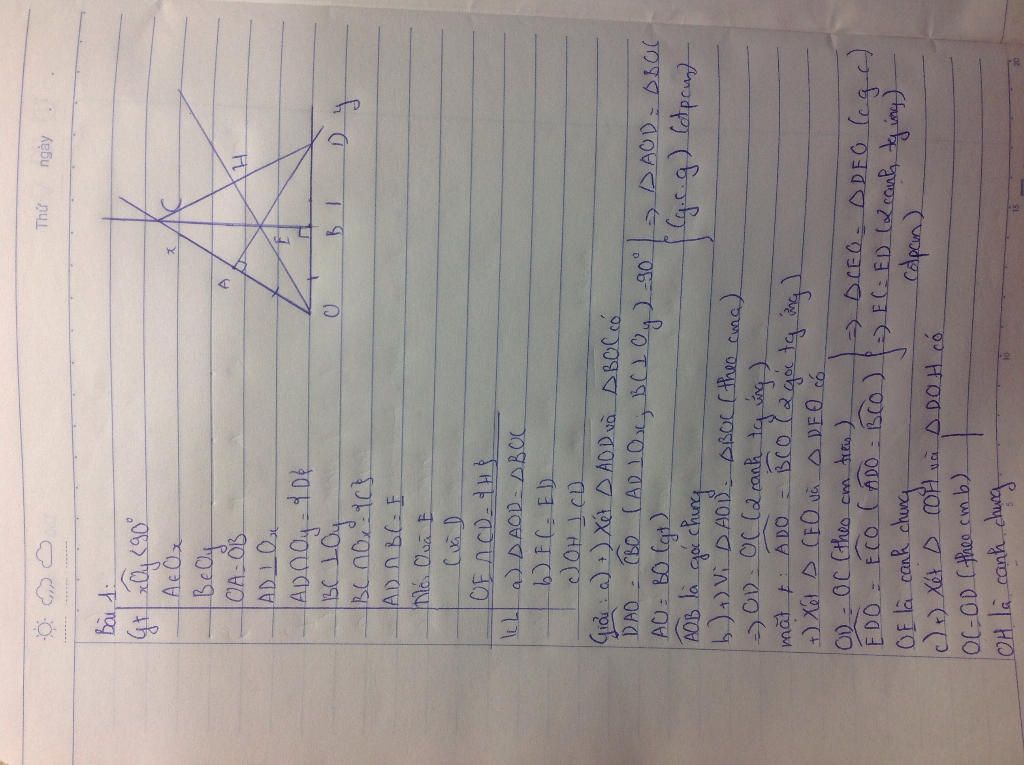 Thứ ngày
Bài 1:
Gt xOy < 90°
A ∈ Ox
B ∈ Oy
OA = OB
AD ⊥ Ox
AD ∩ Oy = {D}
BC ⊥ Oy
BC ∩ Ox = {C}
AD ∩ BC = E
Nối O và E
C và D
OE ∩ CD = {H}
KL a) △AOD = △BOC
b) EC = ED
c) OH ⊥ CD
x
C
A
H
E
O
B
D
y
Giải: a) +) Xét △AOD và △BOC có
DAO = CBO (AD ⊥ Ox, BC ⊥ Oy) = 90°
AO = BO (gt)
AOB là góc chung
⇒ △AOD = △BOC
(g.c.g) (đpcm)
b) +) Vì △AOD = △BOC (theo cma)
⇒ OD = OC (2 cạnh tg ứng)
mặt ≠: ADO = BCO (2 góc tg ứng)
+) Xét △CEO và △DEO có
OD = OC (theo cm trên)
EDO = ECO (ADO = BCO)
OE là cạnh chung
⇒ △CEO = △DEO (c.g.c)
⇒ EC = ED (2 cạnh tg ứng)
(đpcm)
c) +) Xét △COH và △DOH có
OC = OD (theo cm b)
OH là cạnh chung
10
15
20